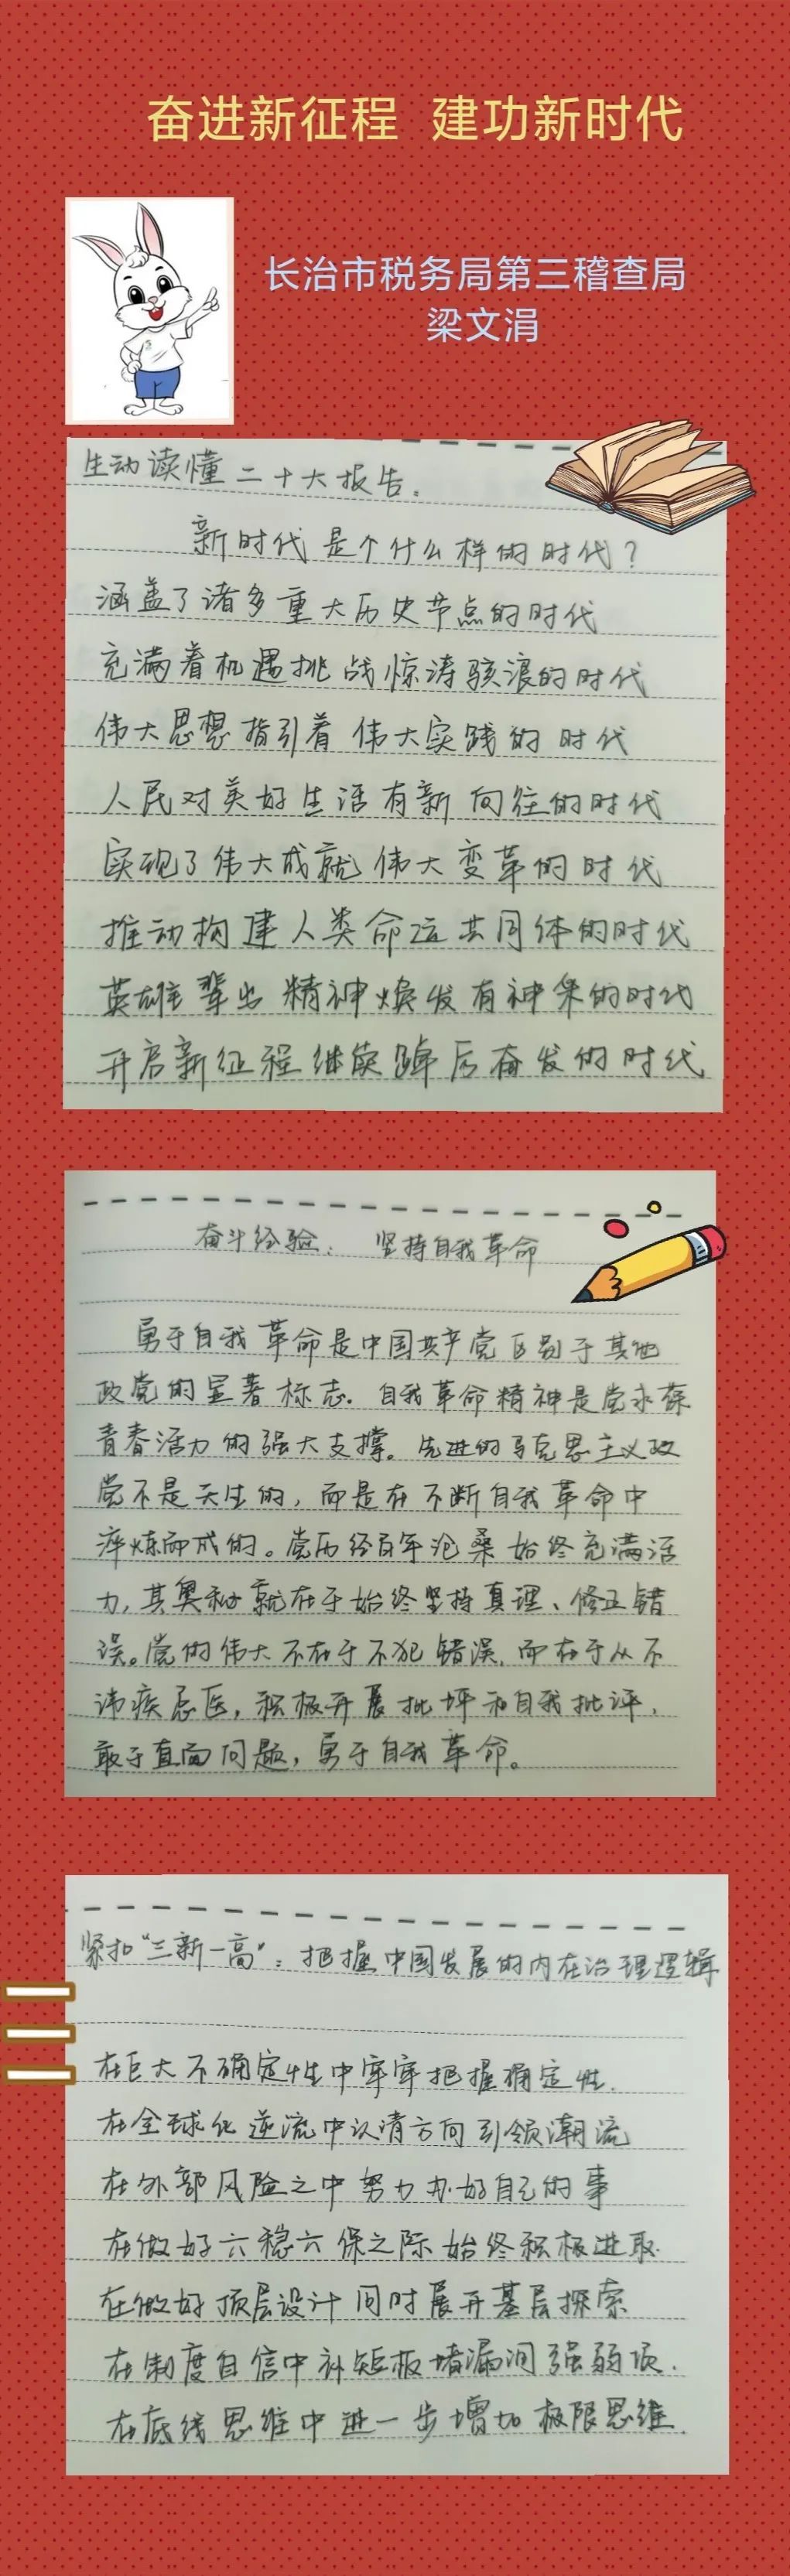 奋进新征程 建功新时代
长治市税务局第三稽查局
梁文涓
生动读懂二十大报告。
新时代是个什么样的时代?
涵盖了诸多重大历史节点的时代
充满着机遇挑战惊涛骇浪的时代
伟大思想指引着伟大实践的时代
人民对美好生活有新向往的时代
实现了伟大成就伟大变革的时代
推动构建人类命运共同体的时代
英雄辈出精神焕发有神采的时代
开启新征程继续踔厉奋发的时代
奋斗经验: 坚持自我革命
勇于自我革命是中国共产党区别于其他
政党的显著标志。自我革命精神是党永葆
青春活力的强大支撑。先进的马克思主义政
党不是天生的,而是在不断自我革命中
淬炼而成的。党历经百年沧桑始终充满活
力,其奥秘就在于始终坚持真理、修正错
误。党的伟大不在于不犯错误,而在于从不
讳疾忌医,积极开展批评和自我批评,
敢于直面问题,勇于自我革命。
紧扣“三新一高”:把握中国发展的内在治理逻辑
在巨大不确定性中牢牢把握确定性.
在全球化逆流中认清方向引领潮流
在外部风险之中努力办好自己的事
在做好六稳六保之际始终积极进取.
在做好顶层设计同时展开基层探索
在制度自信中补短板堵漏洞强弱项.
在底线思维中进一步增加极限思维.